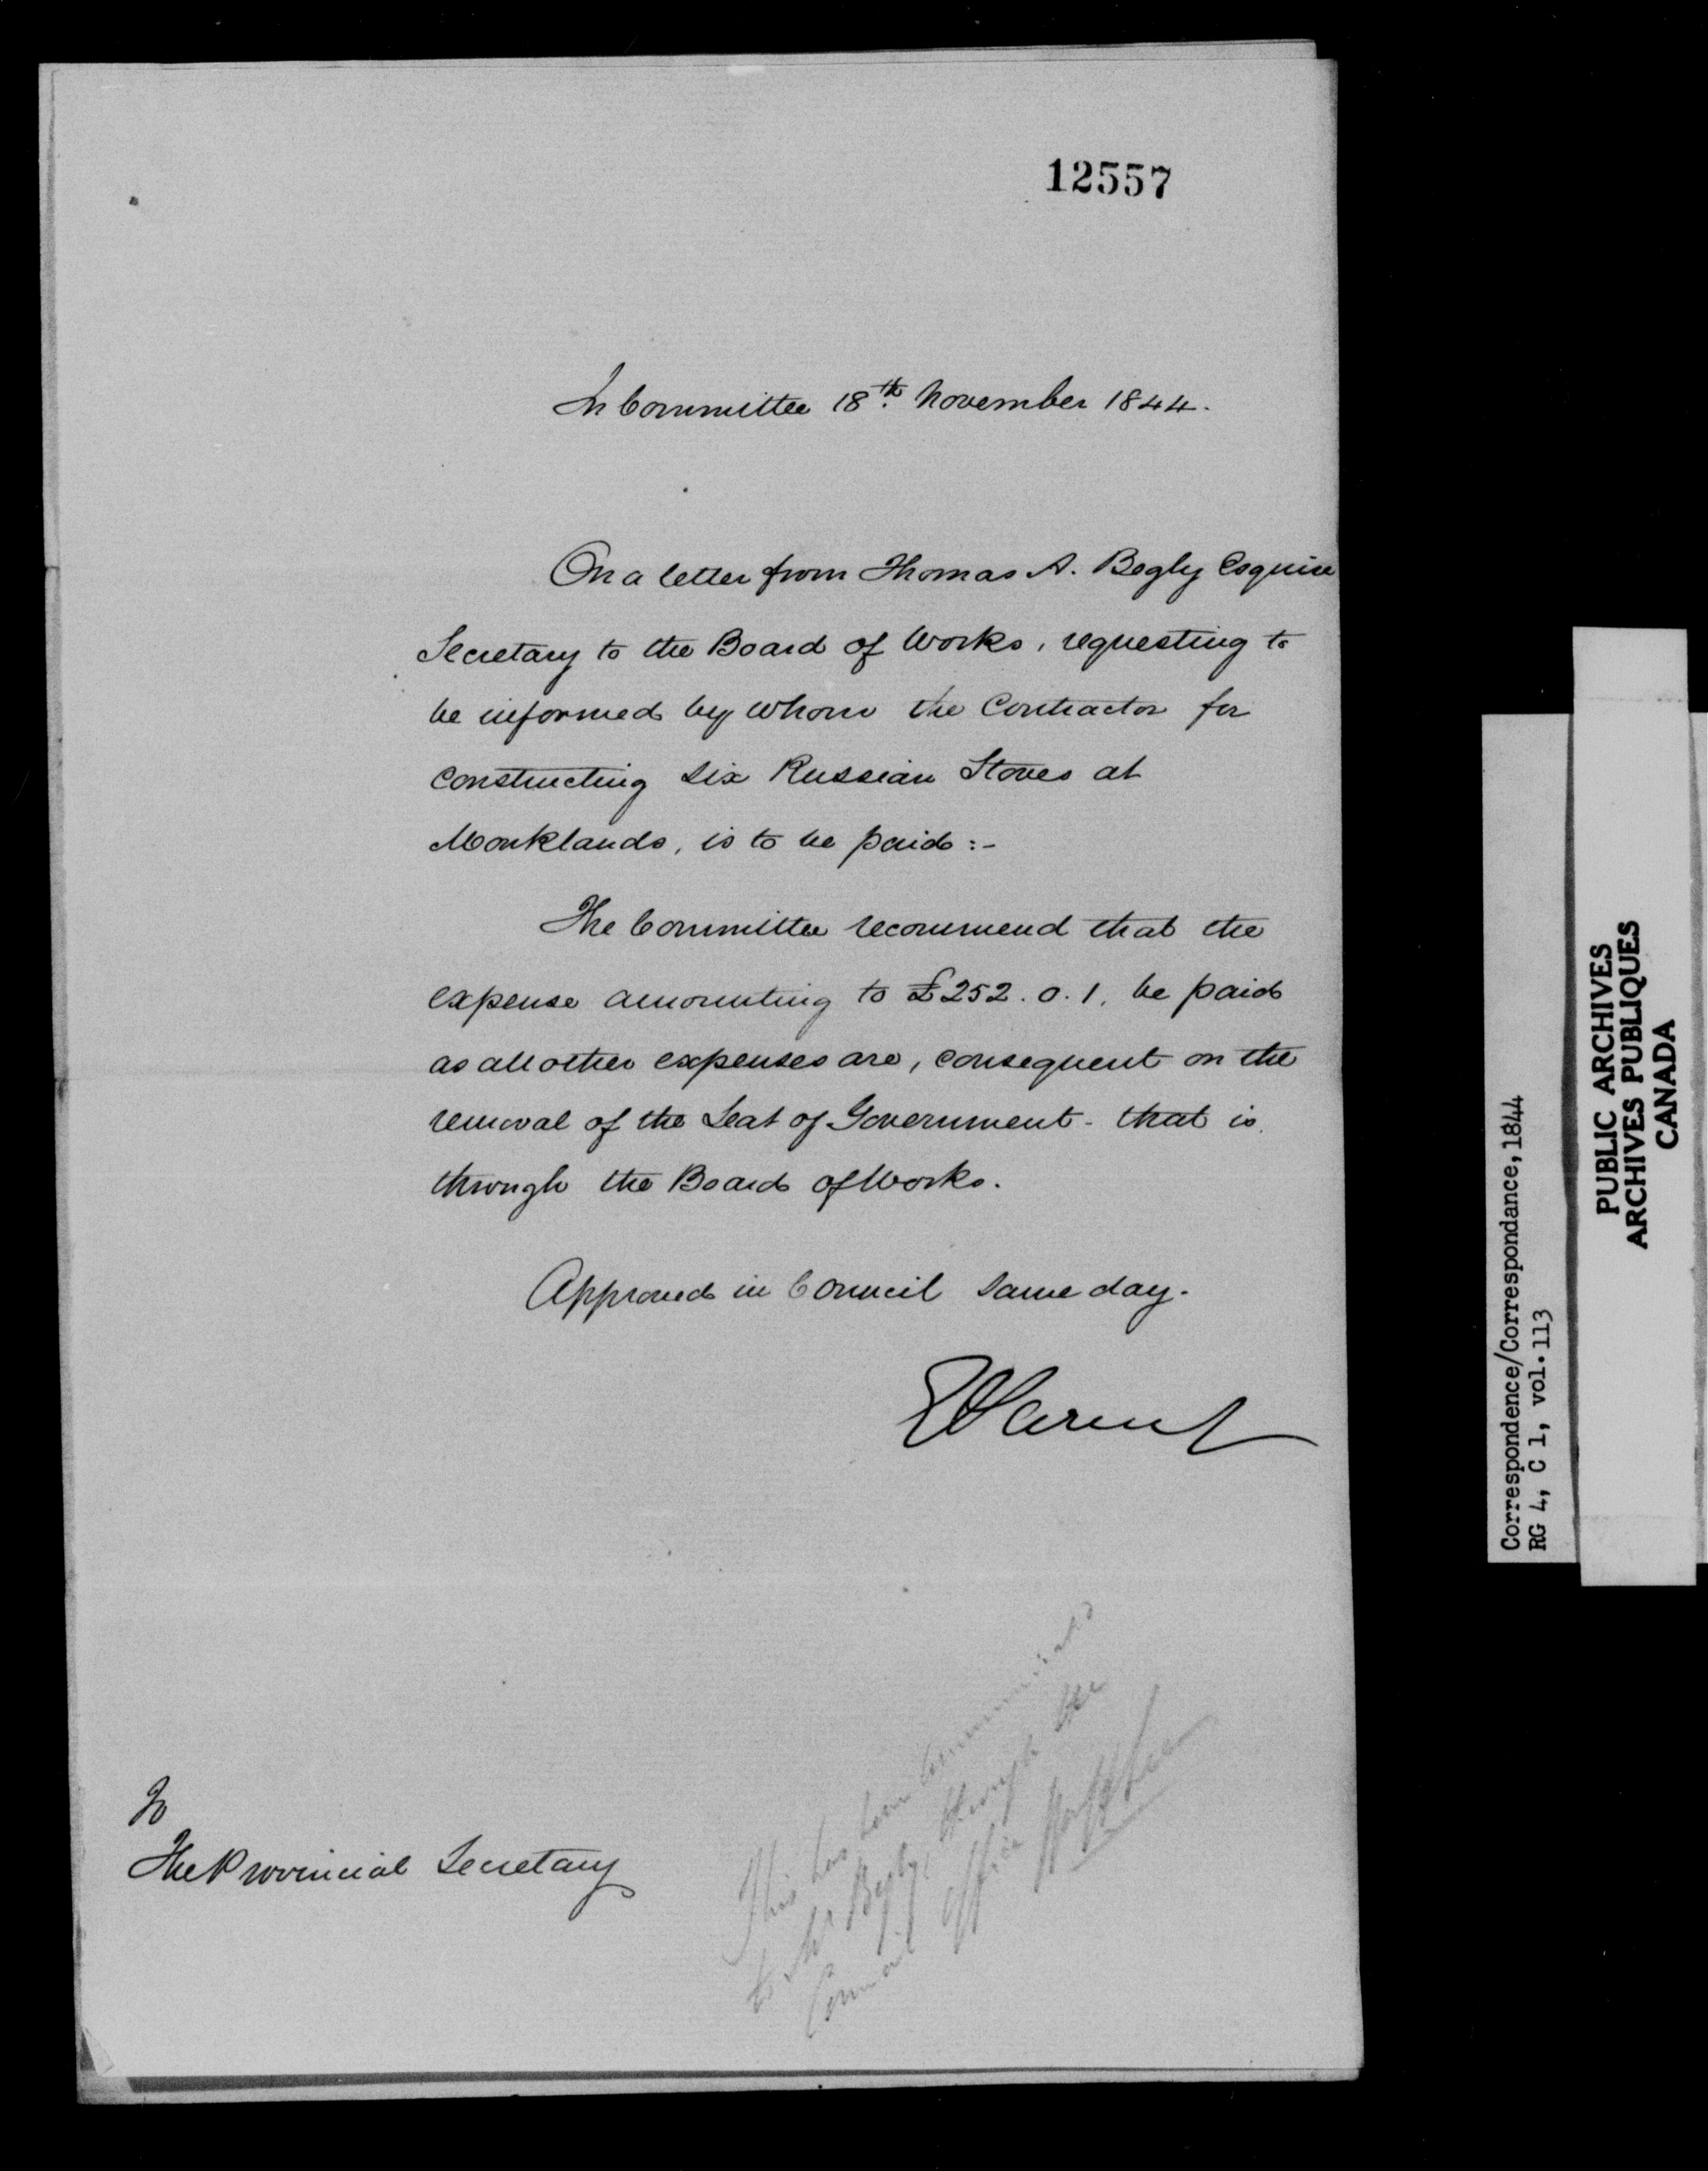 12557
In Committee 18th November 1844.
On a letter from Thomas A. Begly Esquire
Secretary to the Board of Works, requesting to
be informed by whom the Contractor for
constructing six Russian Stoves at
Monklands, is to be paid :-
The Committee recommend that the
expense amounting to £252. 0. 1. be paid
as all other expenses are, consequent on the
removal of the Seat of Government - that is
through the Board of Works.
Approved in Council same day.
To
The Provincial Secretary
This has been communicated
to Mr Begly, through the
Council Office
Correspondence/Correspondance, 1844
RG 4, C 1, vol. 113
PUBLIC ARCHIVES
ARCHIVES PUBLIQUES
CANADA